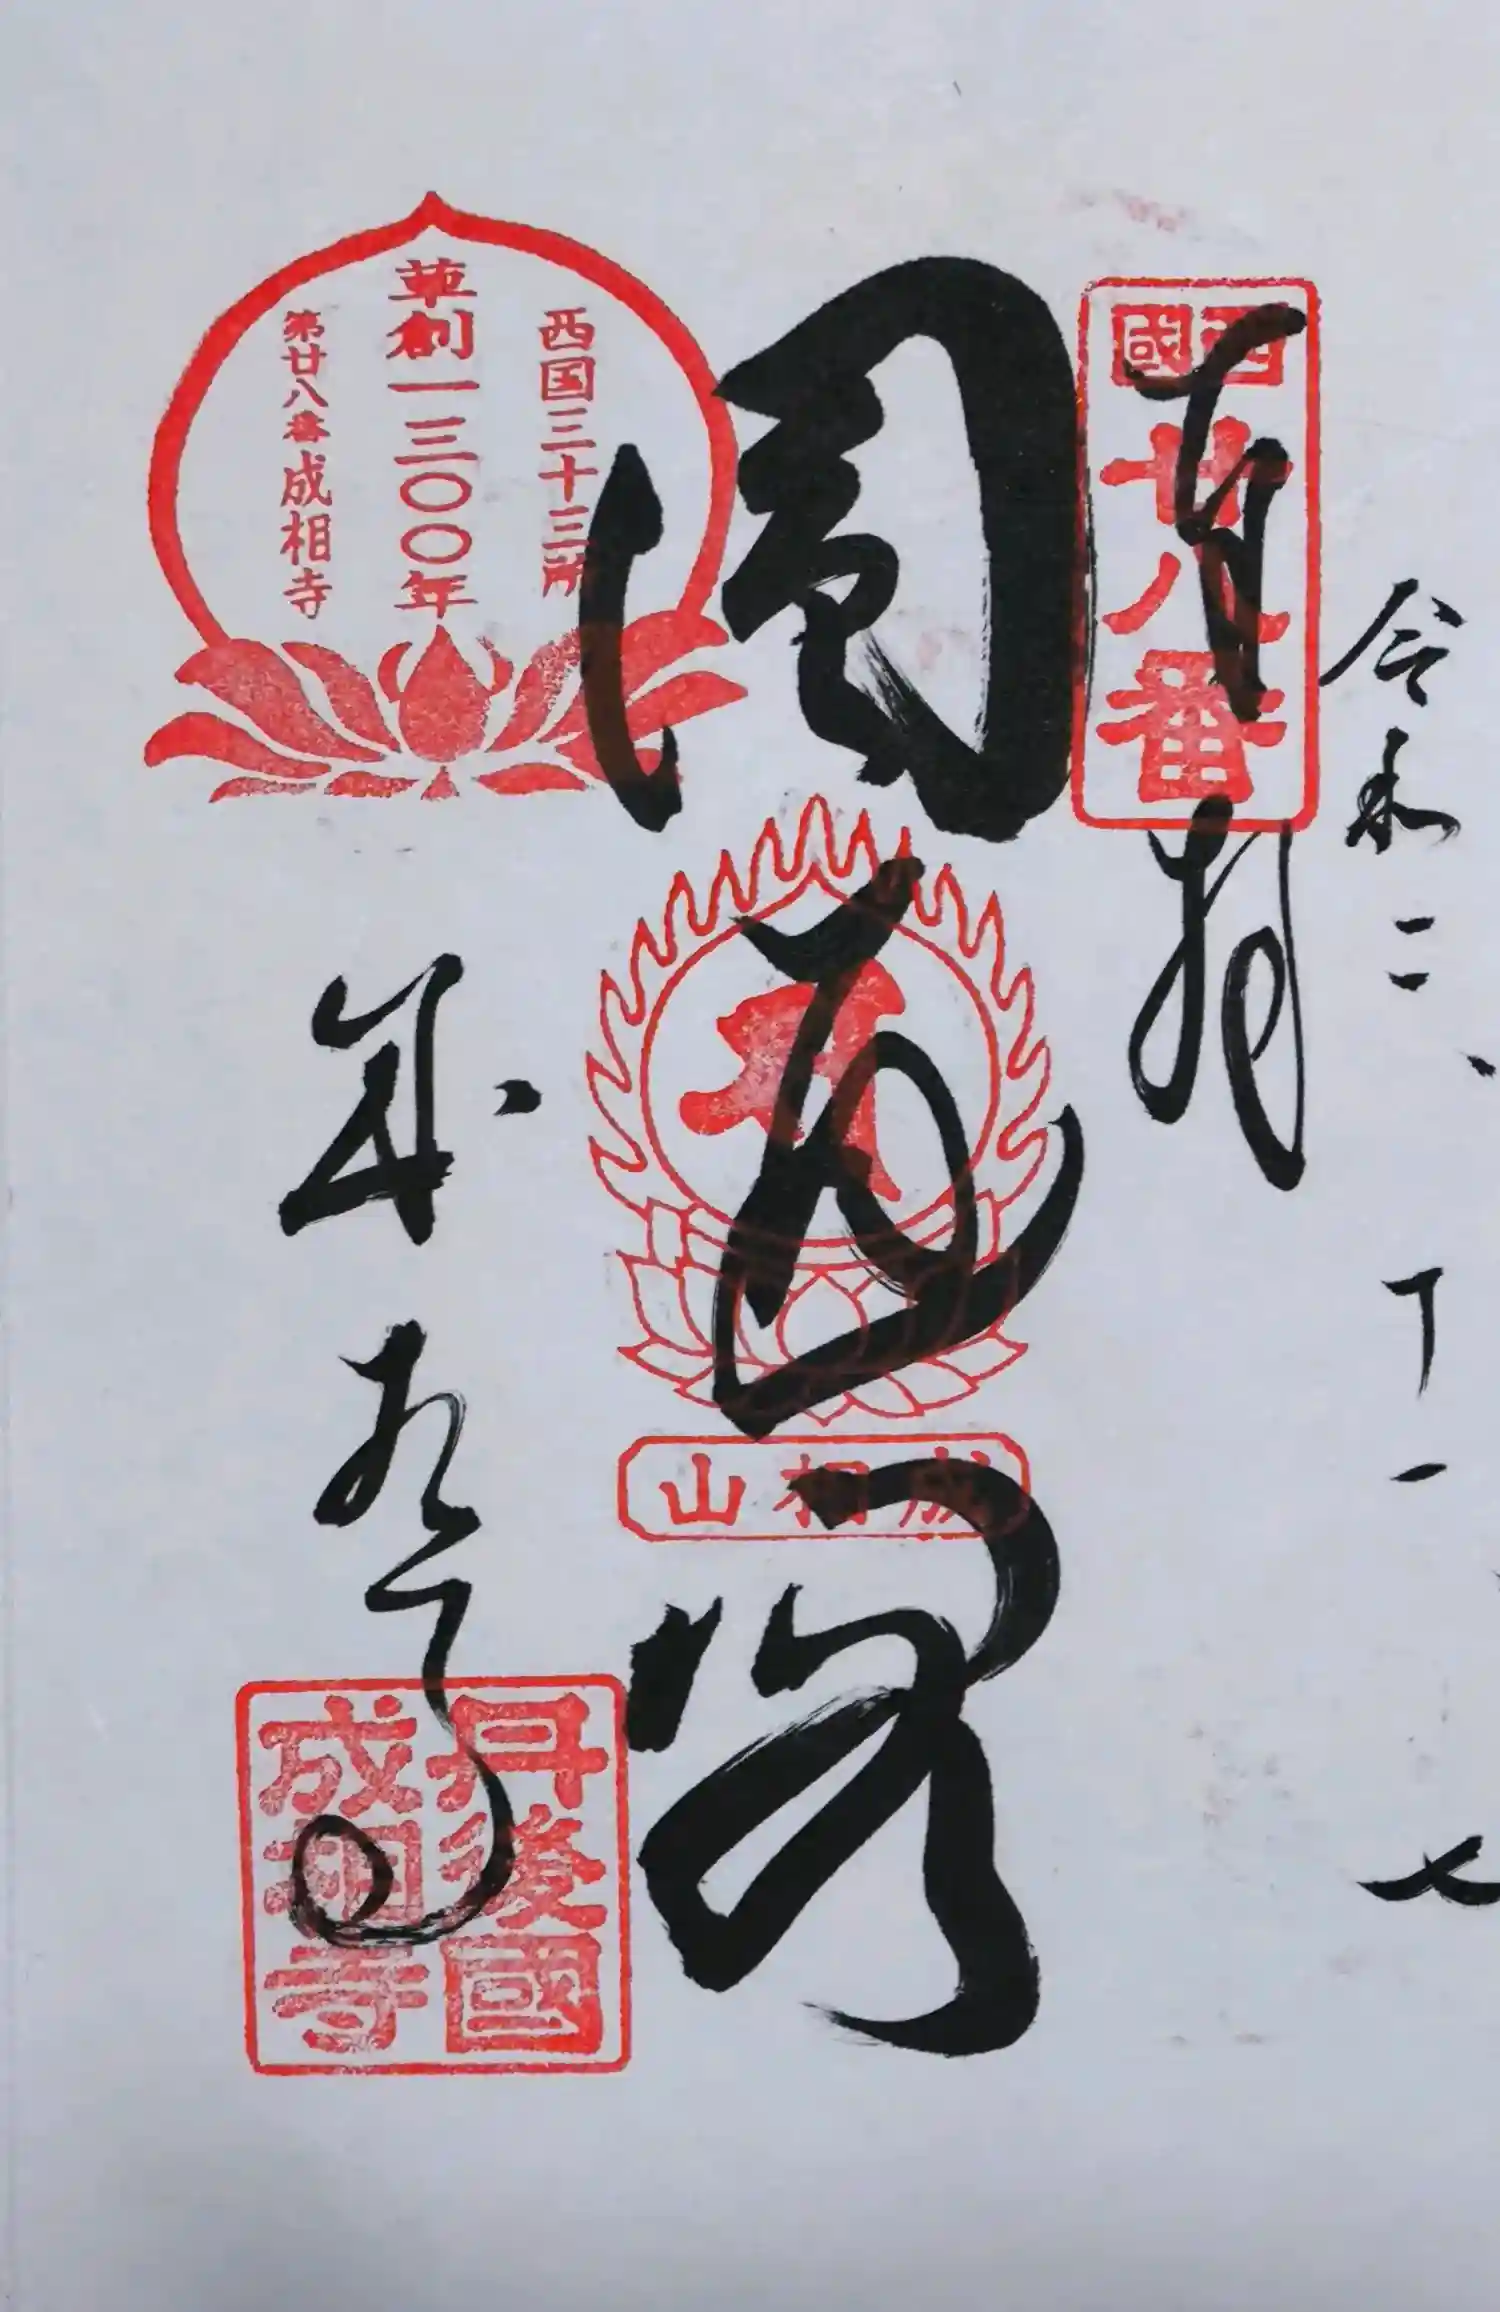 令和二、十一、七
奉拝
西國
廿八番
圓通閣
成相山
西国三十三所
草創一三〇〇年
第廿八番成相寺
成相寺
丹後國
成相寺